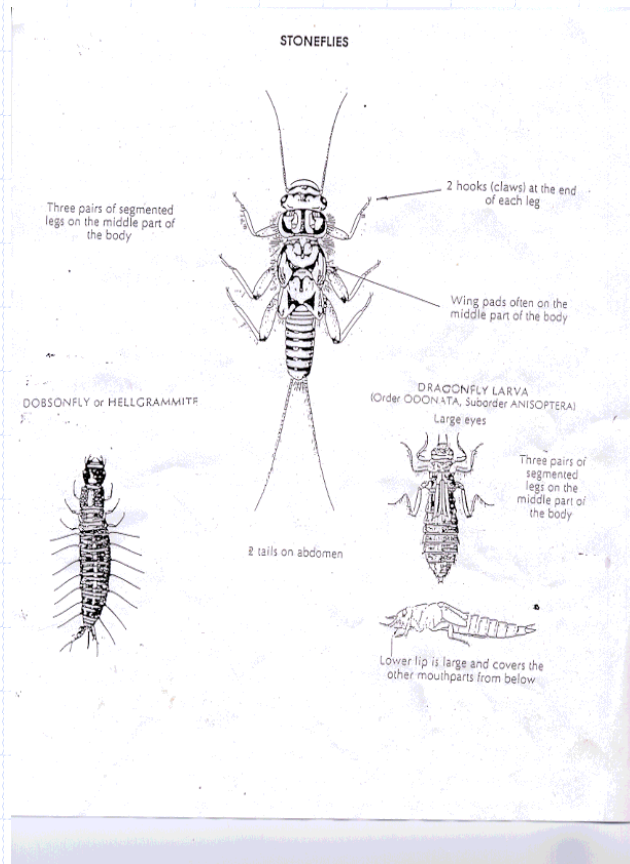 STONEFLIES
2 hooks (claws) at the end
of each leg
Three pairs of segmented
legs on the middle part of
the body
Wing pads often on the
middle part of the body
DOBSONFLY or HELLGRAMMITE
DRAGONFLY LARVA
(Order ODONATA, Suborder ANISOPTERA)
Large eyes
Three pairs of
segmented
legs on the
middle part of
the body
2 tails on abdomen
Lower lip is large and covers the
other mouthparts from below